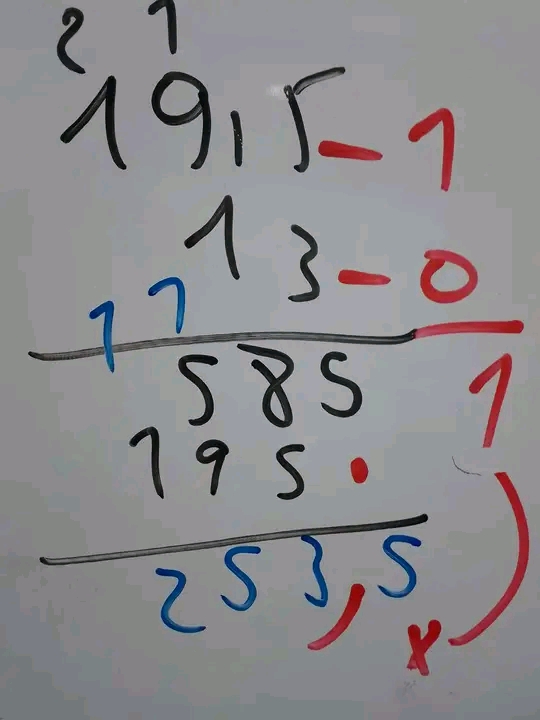 2 1
19,5 - 1
13 - 0
1 1
585 1
195 .
253,5 x